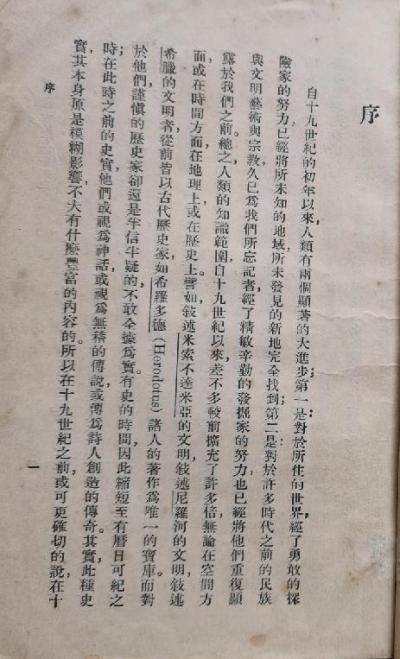 序
自十九世紀的初年以來，人類有兩個顯著的大進步；第一是對於所住的世界，經了勇敢的探
險家的努力，已經將所未知的地域，所未發見的新地完全找到；第二是對於許多時代之前的民族
與文明藝術與宗教久已爲我們所忘記者，經了精敏辛勤的發掘家的努力，也已經將他們重復顯
露於我們之前。總之，人類的知識範圍，自十九世紀以來，差不多較前擴充了許多倍，無論在空間方
面，或在時間方面，在地理上或在歷史上。譬如敍述米索不達米亞的文明，敍述尼羅河的文明，敍述
希臘的文明者，從前皆以古代歷史家如希羅多德（Herodotus）諸人的著作爲唯一的寶庫，而對
於他們，謹愼的歷史家卻還是半信半疑的，不敢全據爲實。有史的時間，因此縮短至有曆日可紀之
時；在此時之前的史實，他們或視爲神話，或視爲無稽的傳說，或傳爲詩人創造的傳奇。其實此種史
實其本身原是模糊影響，不大有什麼豐富的內容的。所以在十九世紀之前，或可更確切的說，在十
序
一